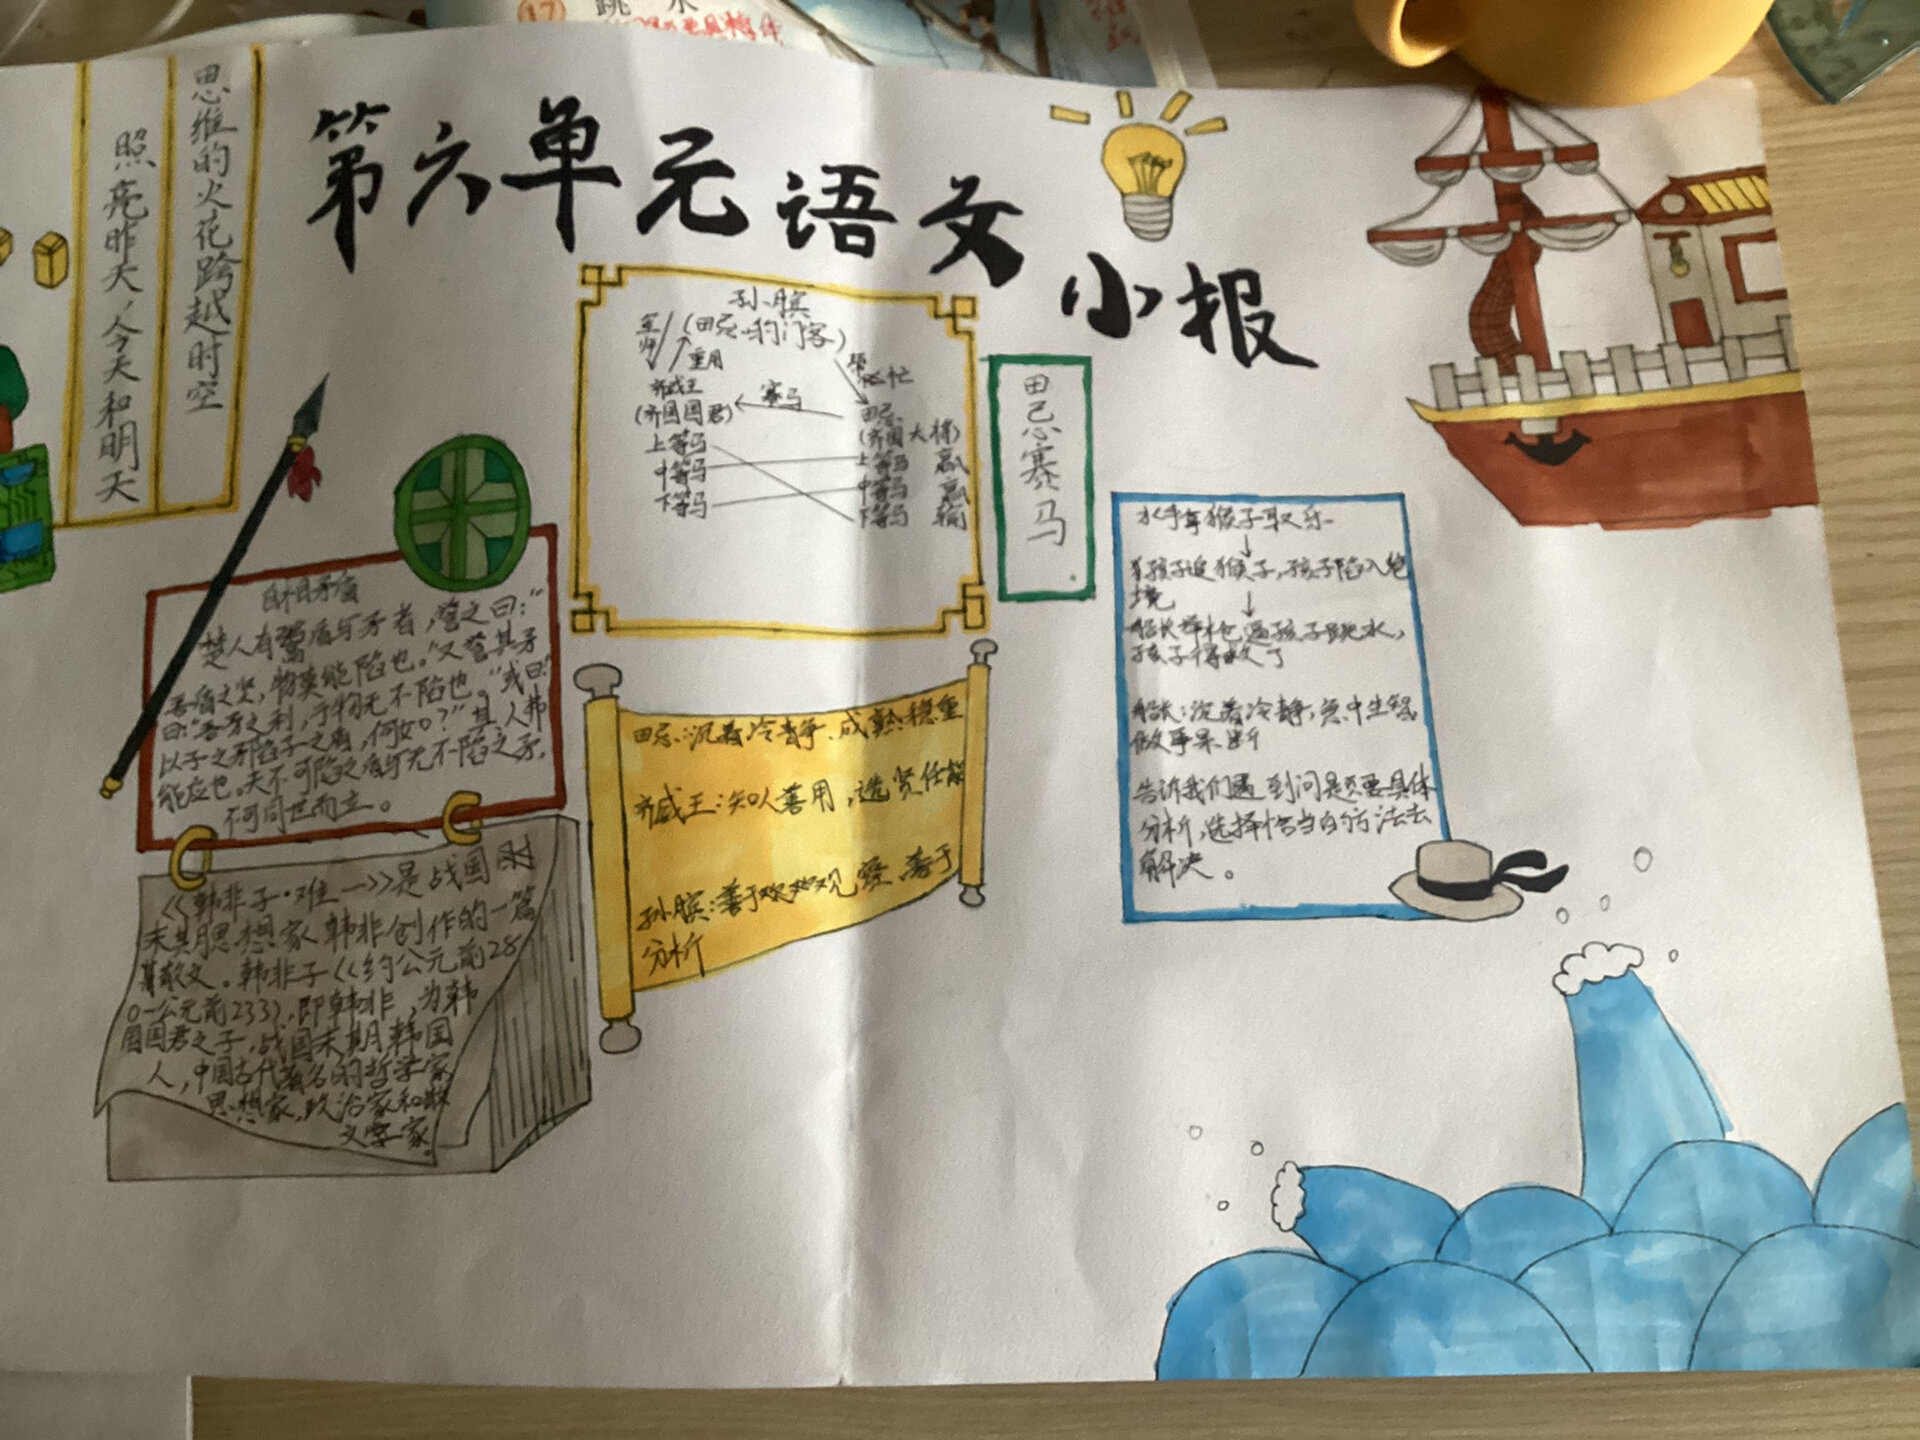 ⑰ 跳水
思维的火花跨越时空
照亮昨天、今天和明天
第六单元语文小报
孙膑
(田忌的门客)
军师
重用
帮忙
齐威王
赛马
(齐国国君)
田忌
(齐国大将)
上等马
中等马
下等马
上等马 赢
中等马 赢
下等马 输
田忌赛马
自相矛盾
楚人有鬻盾与矛者，誉之曰："
吾盾之坚，物莫能陷也。"又誉其矛
曰："吾矛之利，于物无不陷也。"或曰："
以子之矛陷子之盾，何如？"其人弗
能应也。夫不可陷之盾与无不陷之矛，
不可同世而立。
<<韩非子·难一>>是战国时
末其思想家韩非创作的一篇
散文。韩非子<<约公元前28
0-公元前233)，即韩非，为韩
国国君之子，战国末期韩国
人，中国古代著名的哲学家
思想家，政治家和散
文学家。
田忌：沉着冷静、成熟稳重
齐威王：知人善用，选贤任能
孙膑：善于观察、善于
分析
水手拿猴子取乐
↓
孩子追猴子，孩子陷入绝
境
↓
船长举枪逼孩子跳水，
孩子得救了
船长：沉着冷静，急中生智，
做事果断
告诉我们遇到问题要具体
分析，选择恰当的方法去
解决。